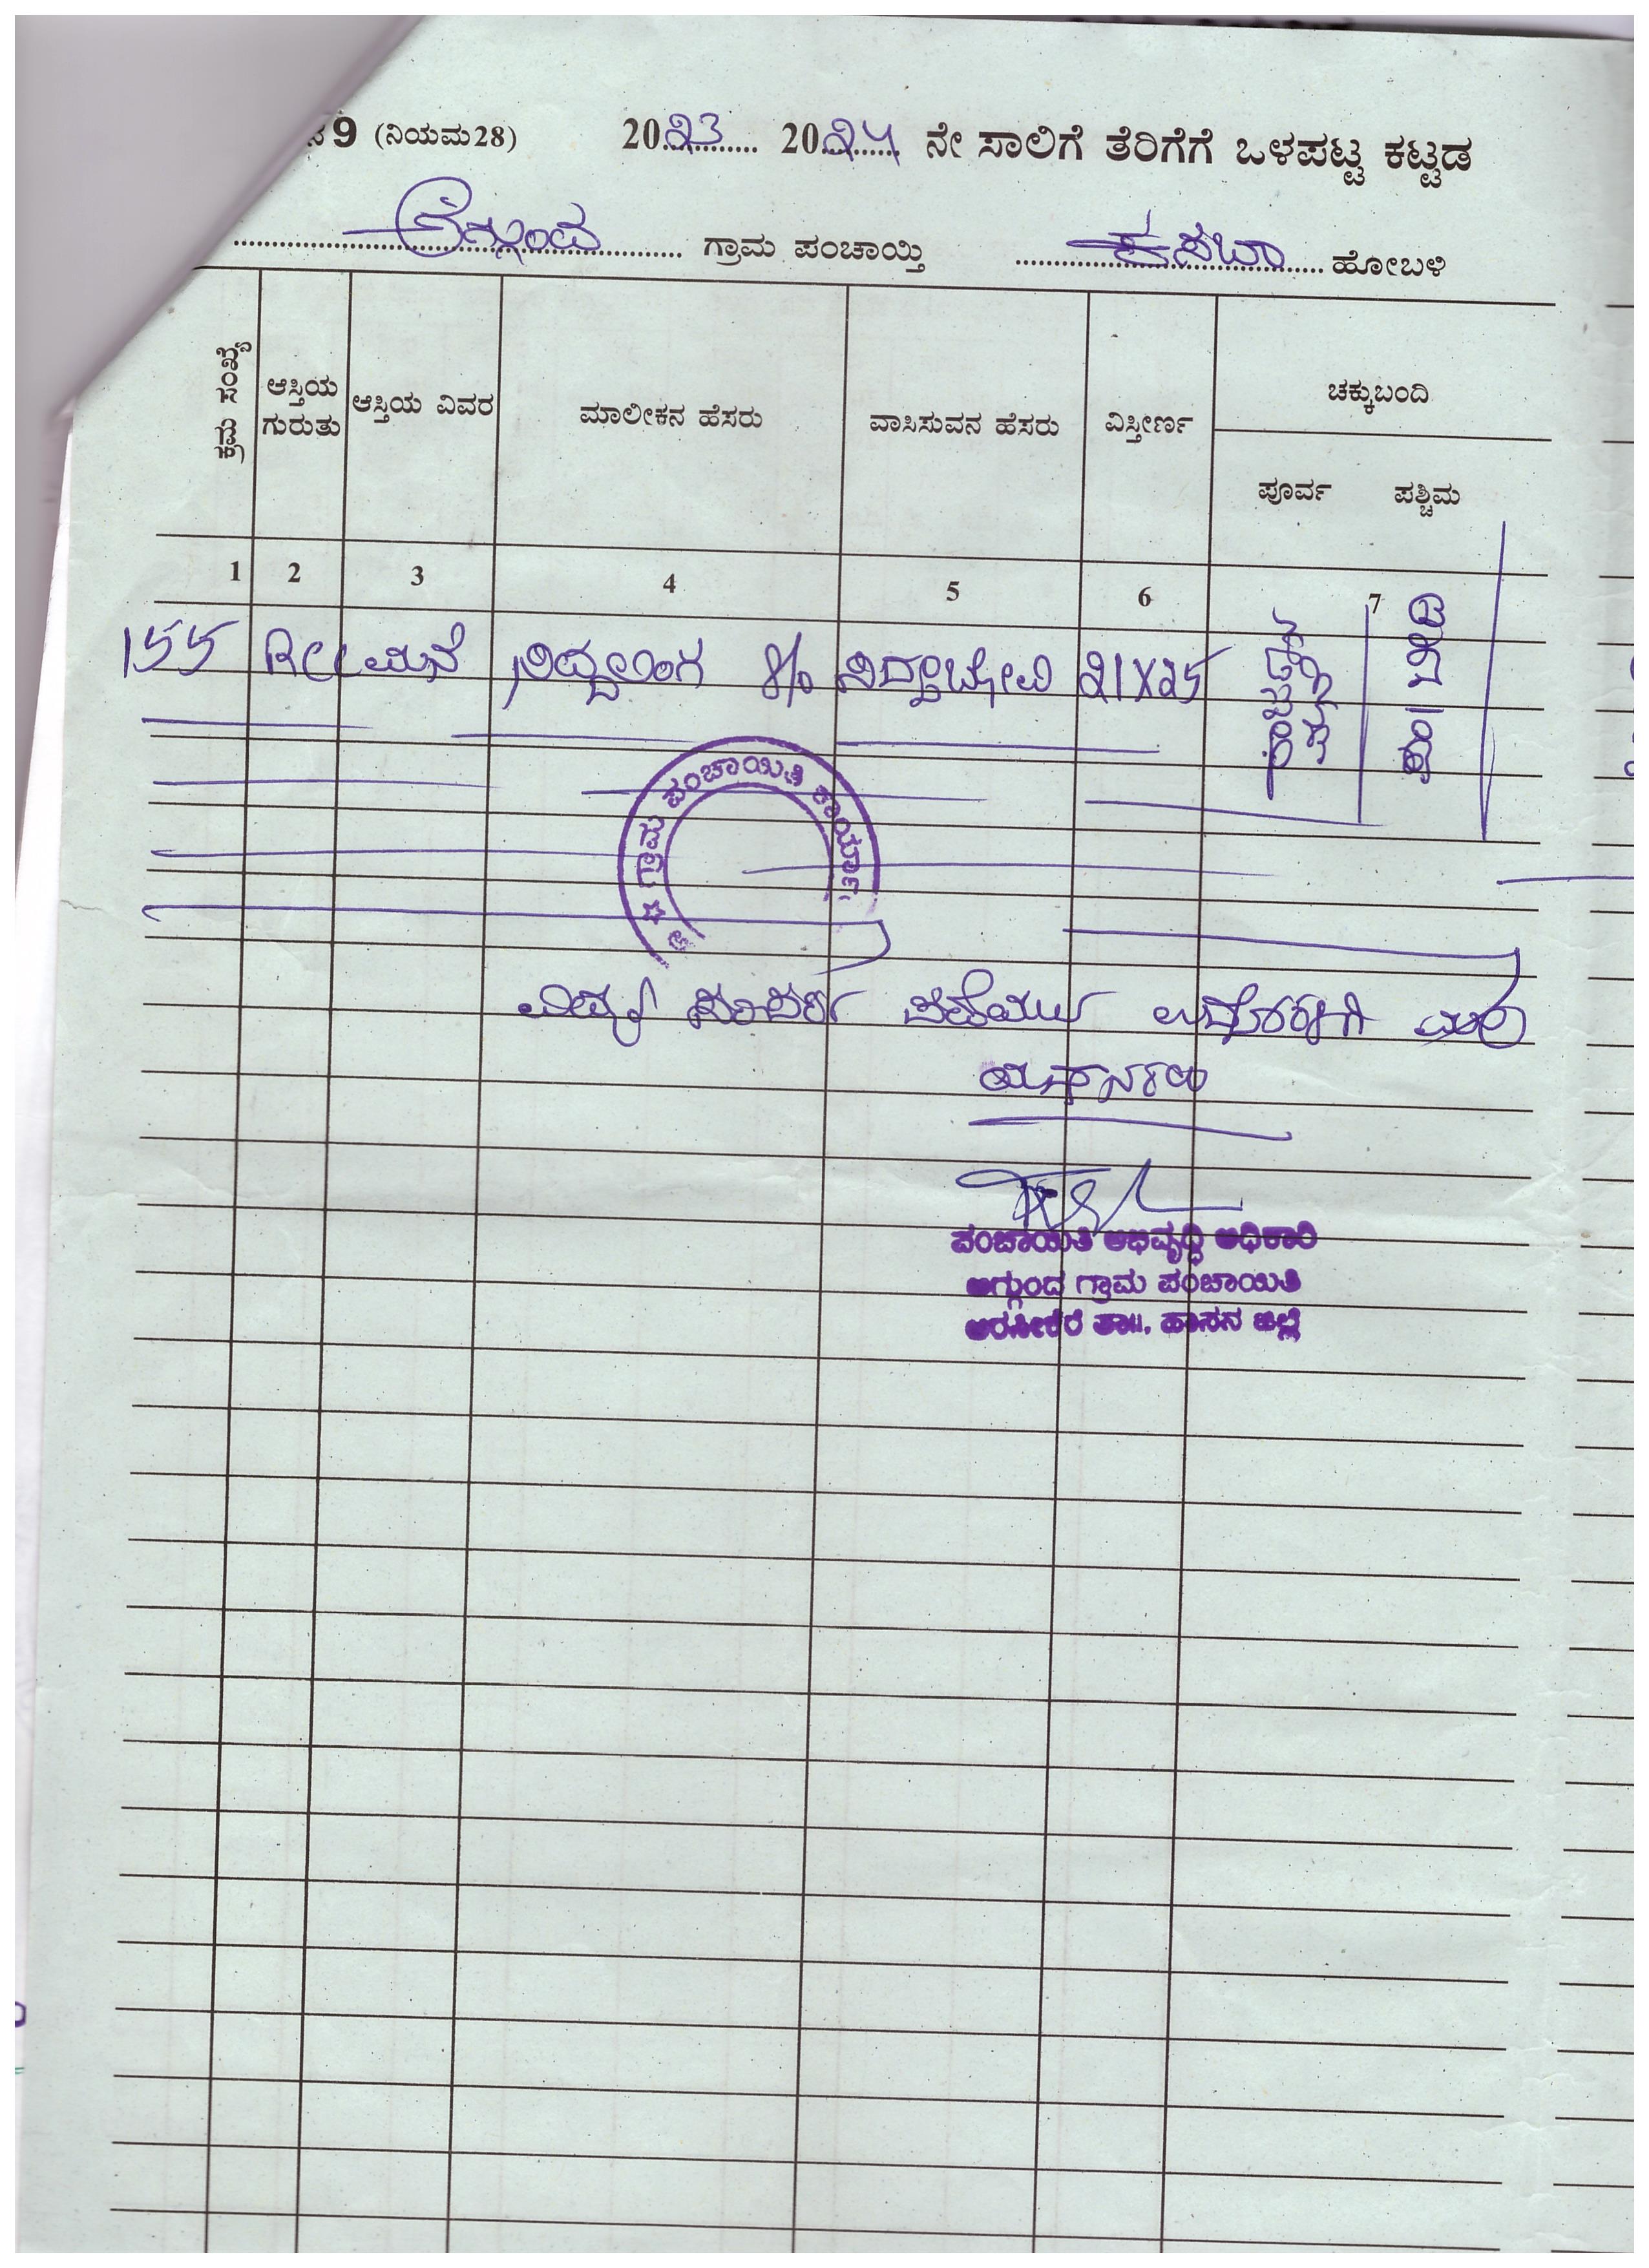 9 (ನಿಯಮ 28) 2023 2024 ನೇ ಸಾಲಿಗೆ ತೆರಿಗೆಗೆ ಒಳಪಟ್ಟ ಕಟ್ಟಡ
ಅಗ್ಗುಂದ ಗ್ರಾಮ ಪಂಚಾಯ್ತಿ ಕಸಬಾ ಹೋಬಳಿ
ಕ್ರಮ ಸಂಖ್ಯೆ ಆಸ್ತಿಯ ಗುರುತು ಆಸ್ತಿಯ ವಿವರ ಮಾಲೀಕನ ಹೆಸರು ವಾಸಿಸುವನ ಹೆಸರು ವಿಸ್ತೀರ್ಣ ಚಕ್ಕುಬಂದಿ
ಪೂರ್ವ ಪಶ್ಚಿಮ
1 2 3 4 5 6 7
155 RCC ಮನೆ ಸಿದ್ದಲಿಂಗ 21X25
ಗ್ರಾಮ ಪಂಚಾಯಿತಿ ಕಾರ್ಯಾ
ವಿದ್ಯುತ್ ಸಂಪರ್ಕ ಪಡೆಯುವ
ಪಂಚಾಯಿತಿ ಅಭಿವೃದ್ಧಿ ಅಧಿಕಾರಿ
ಅಗ್ಗುಂದ ಗ್ರಾಮ ಪಂಚಾಯಿತಿ
ಅರಸೀಕೆರೆ ತಾ||, ಹಾಸನ ಜಿಲ್ಲೆ